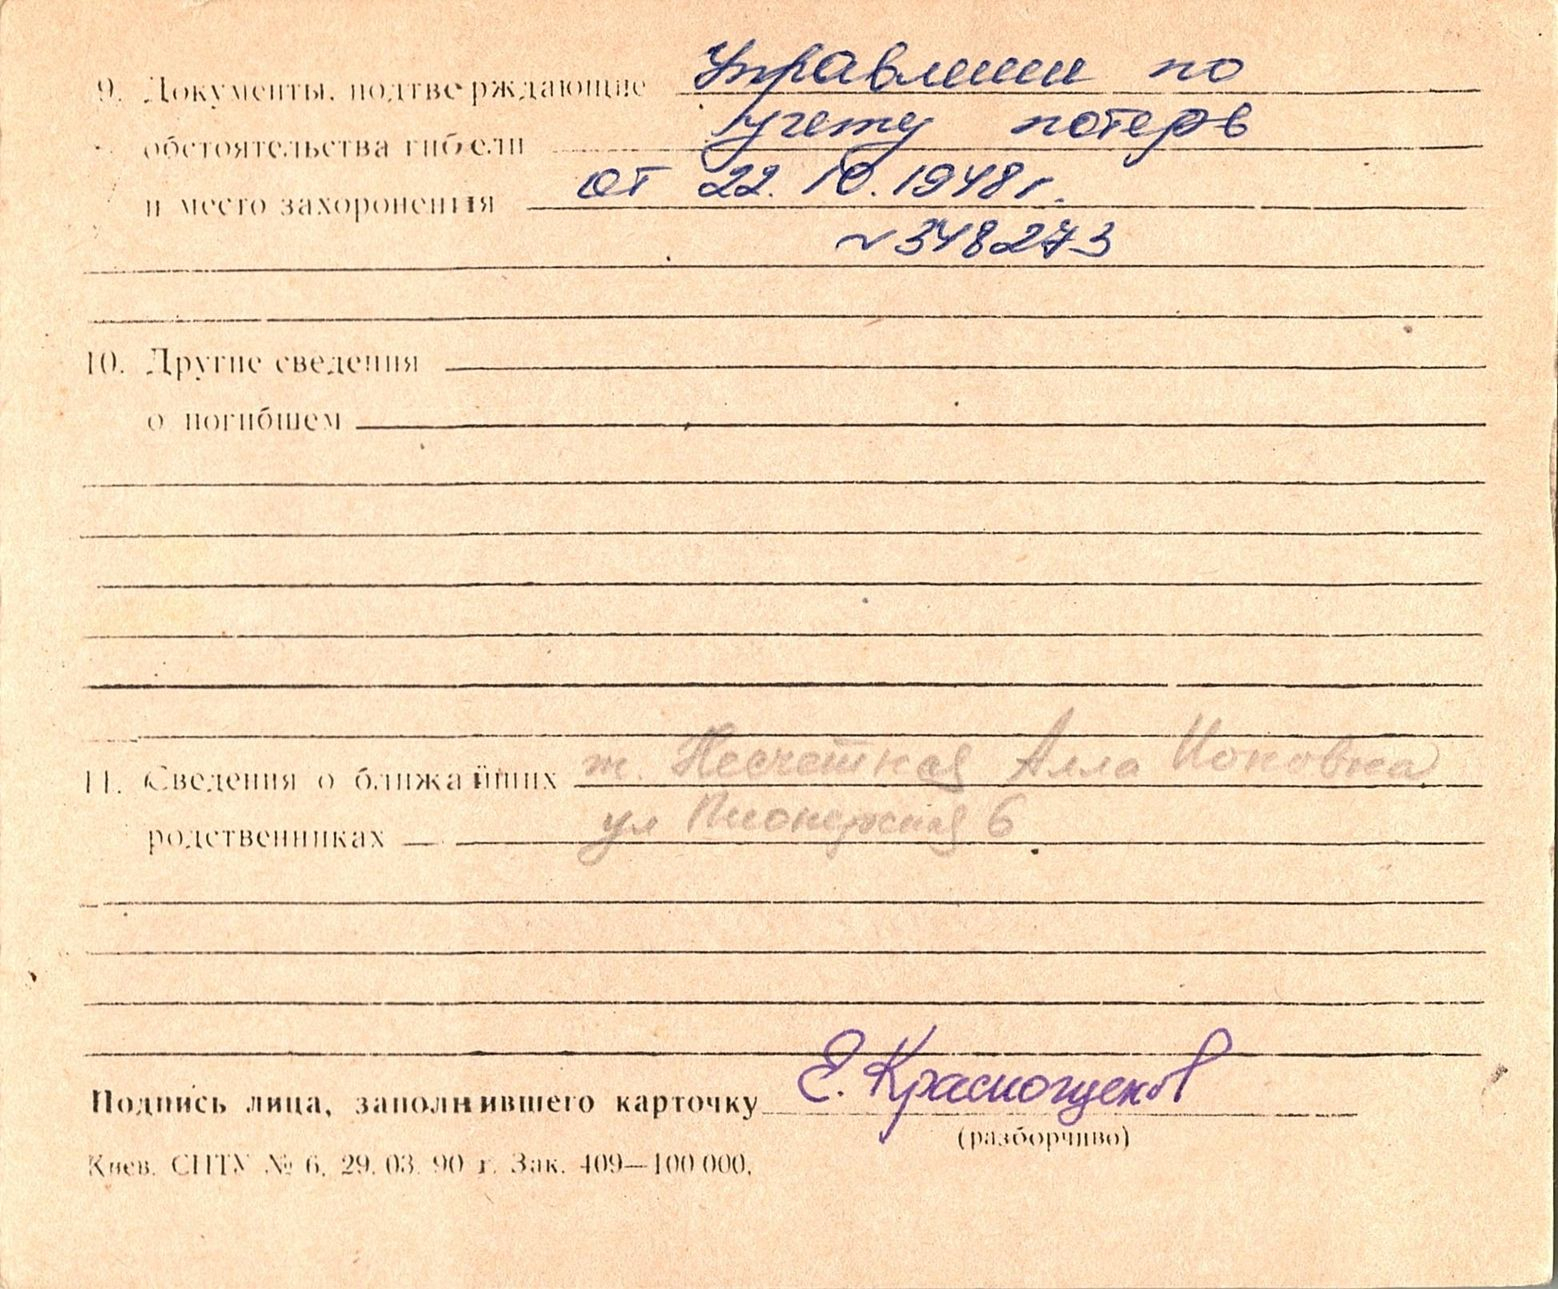 9. Документы, подтверждающие Управлении по
обстоятельства гибели учету потерь
и место захоронения от 22.10.1948г.
№348273
10. Другие сведения
о погибшем
11. Сведения о ближайших ж. Несчетная Алла Ионовна
родственниках ул Пионерская 6
Подпись лица, заполнившего карточку Е. Краснощеков
(разборчиво)
Киев. СПТУ № 6, 29. 03. 90 г. Зак. 409—100 000.